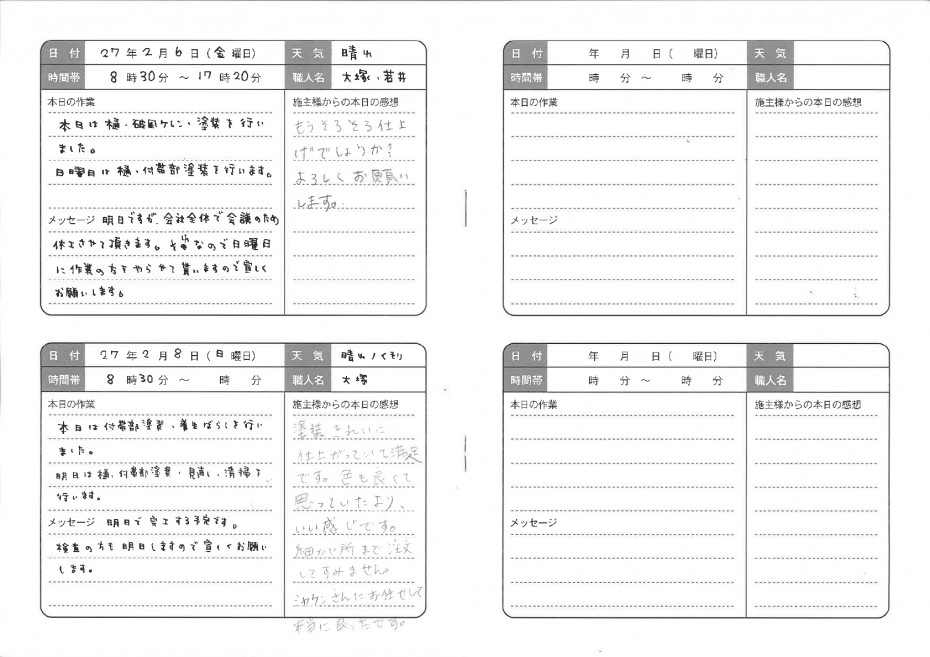 日付 27年2月6日(金曜日) 天気 晴れ
時間帯 8時30分～17時20分 職人名 大塚、若井
本日の作業
本日は樋・破風ケレン・塗装を行い
ました。
日曜日は樋・付帯部塗装を行います。
メッセージ 明日ですが、会社全体で会議のため
休工させて頂きます。その為なので日曜日
に作業の方をやらせて貰いますので宜しく
お願いします。
施主様からの本日の感想
もうそろそろ仕上
げでしょうか?
よろしくお願い
します。
日付 27年2月8日(日曜日) 天気 晴れ/くもり
時間帯 8時30分～ 時 分 職人名 大塚
本日の作業
本日は付帯部塗装・養生ばらしを行い
ました。
明日は樋、付帯部塗装・見直し、清掃を
行います。
メッセージ 明日で完工する予定です。
検査の方も明日しますので宜しくお願い
します。
施主様からの本日の感想
塗装きれいに
仕上がっていて満足
です。色も良くて
思っていたより、
いい感じです。
細かい所まで注文
してすみません。
シャケンさんにお任せして
本当に良かったです。
日付 年 月 日( 曜日) 天気
時間帯 時 分～ 時 分 職人名
本日の作業
メッセージ
施主様からの本日の感想
日付 年 月 日( 曜日) 天気
時間帯 時 分～ 時 分 職人名
本日の作業
メッセージ
施主様からの本日の感想